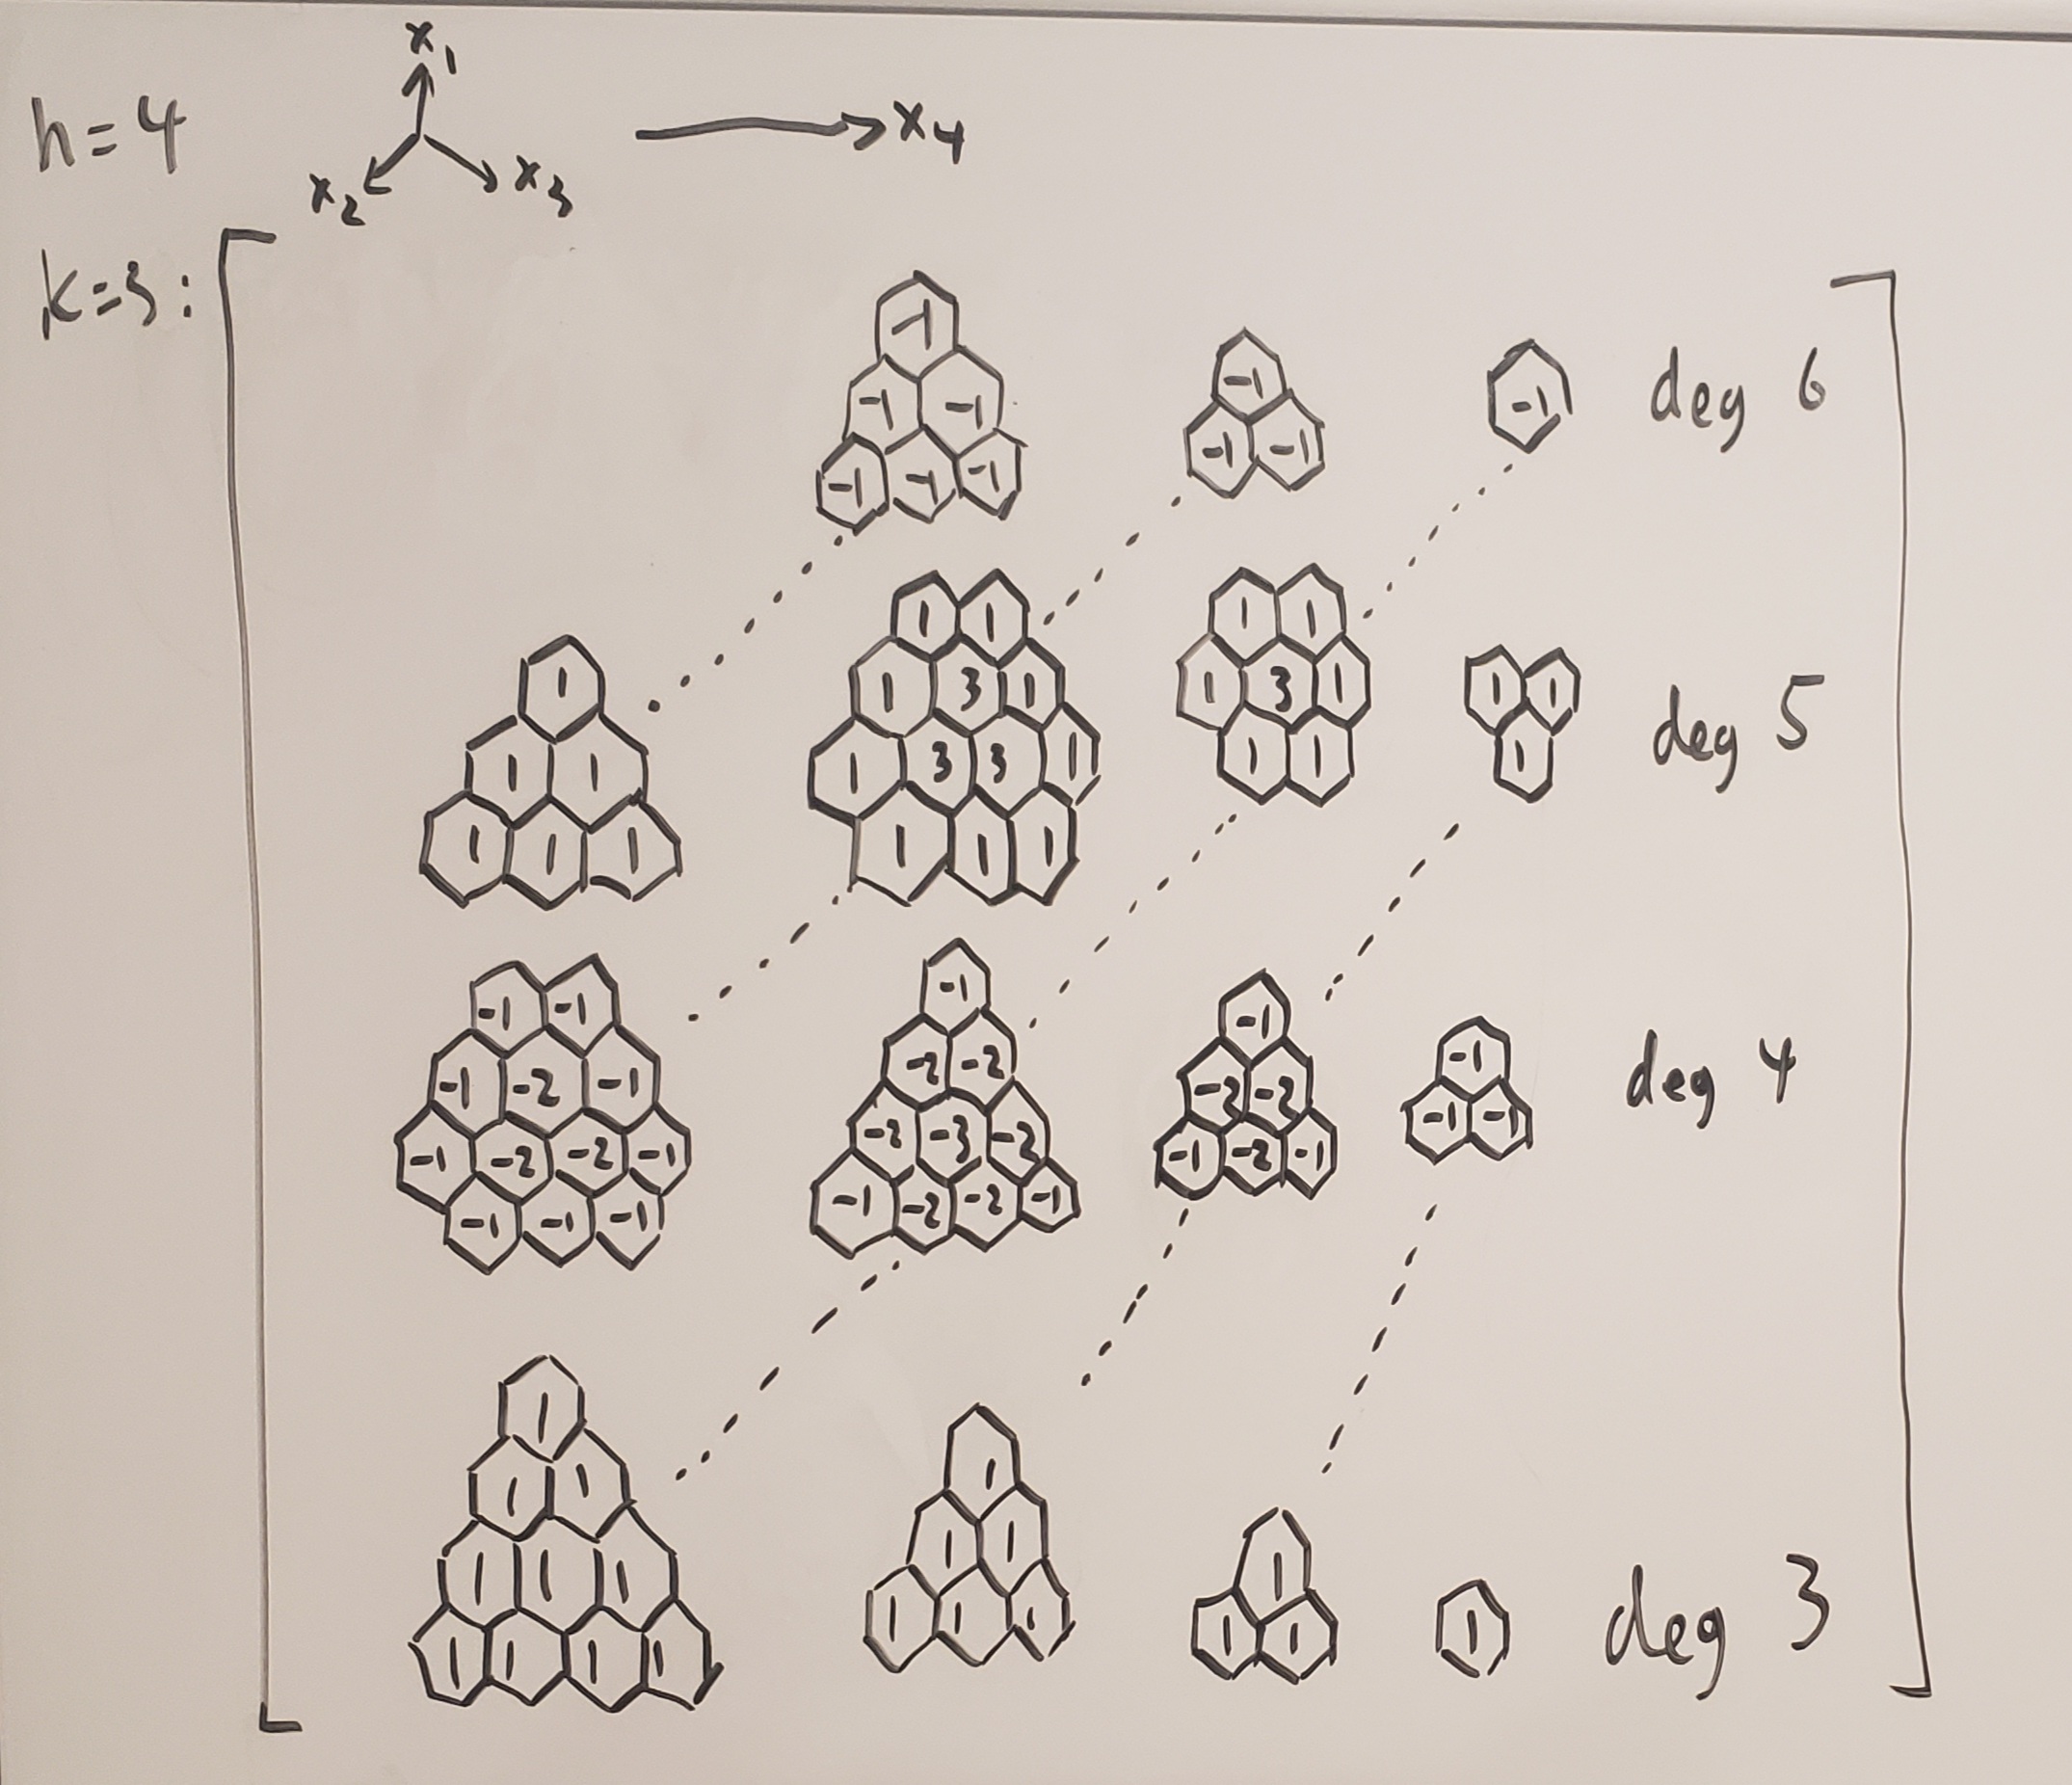 x₁
h=4
x₂ x₃
x₄
k=3:
-1
-1 -1
-1 -1 -1
-1
-1 -1
-1
deg 6
1
1 1
1 1 1
1 1
1 3 1
1 3 3 1
1 1 1
1 1
1 3 1
1 1
1 1
1
deg 5
-1 -1
-1 -2 -1
-1 -2 -2 -1
-1 -1 -1
-1
-2 -2
-2 -3 -2
-1 -2 -2 -1
-1
-2 -2
-1 -2 -1
-1
-1 -1
deg 4
1
1 1
1 1 1
1 1 1 1
1
1 1
1 1 1
1
1 1
1
deg 3